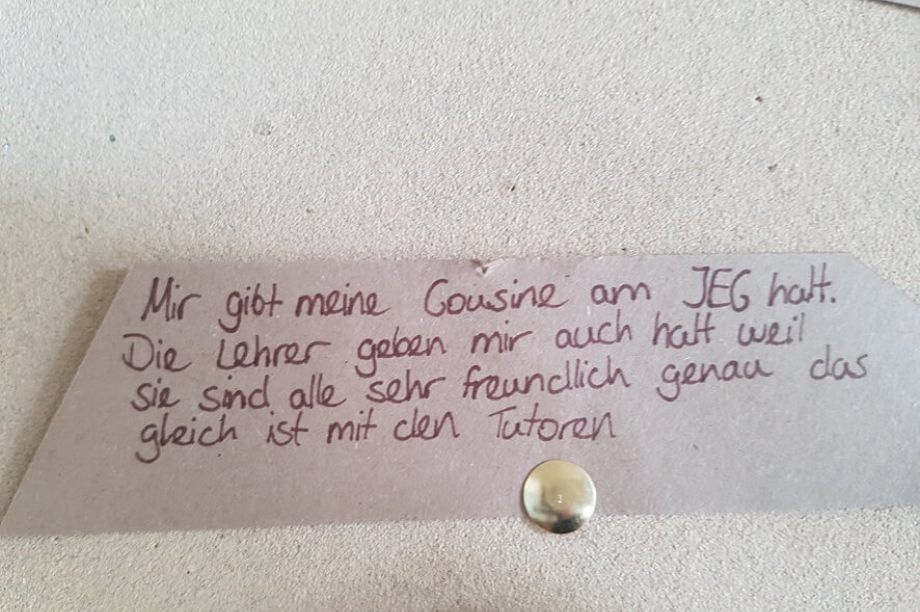 Mir gibt meine Cousine am JEG halt.
Die Lehrer geben mir auch halt weil
sie sind alle sehr freundlich genau das
gleich ist mit den Tutoren